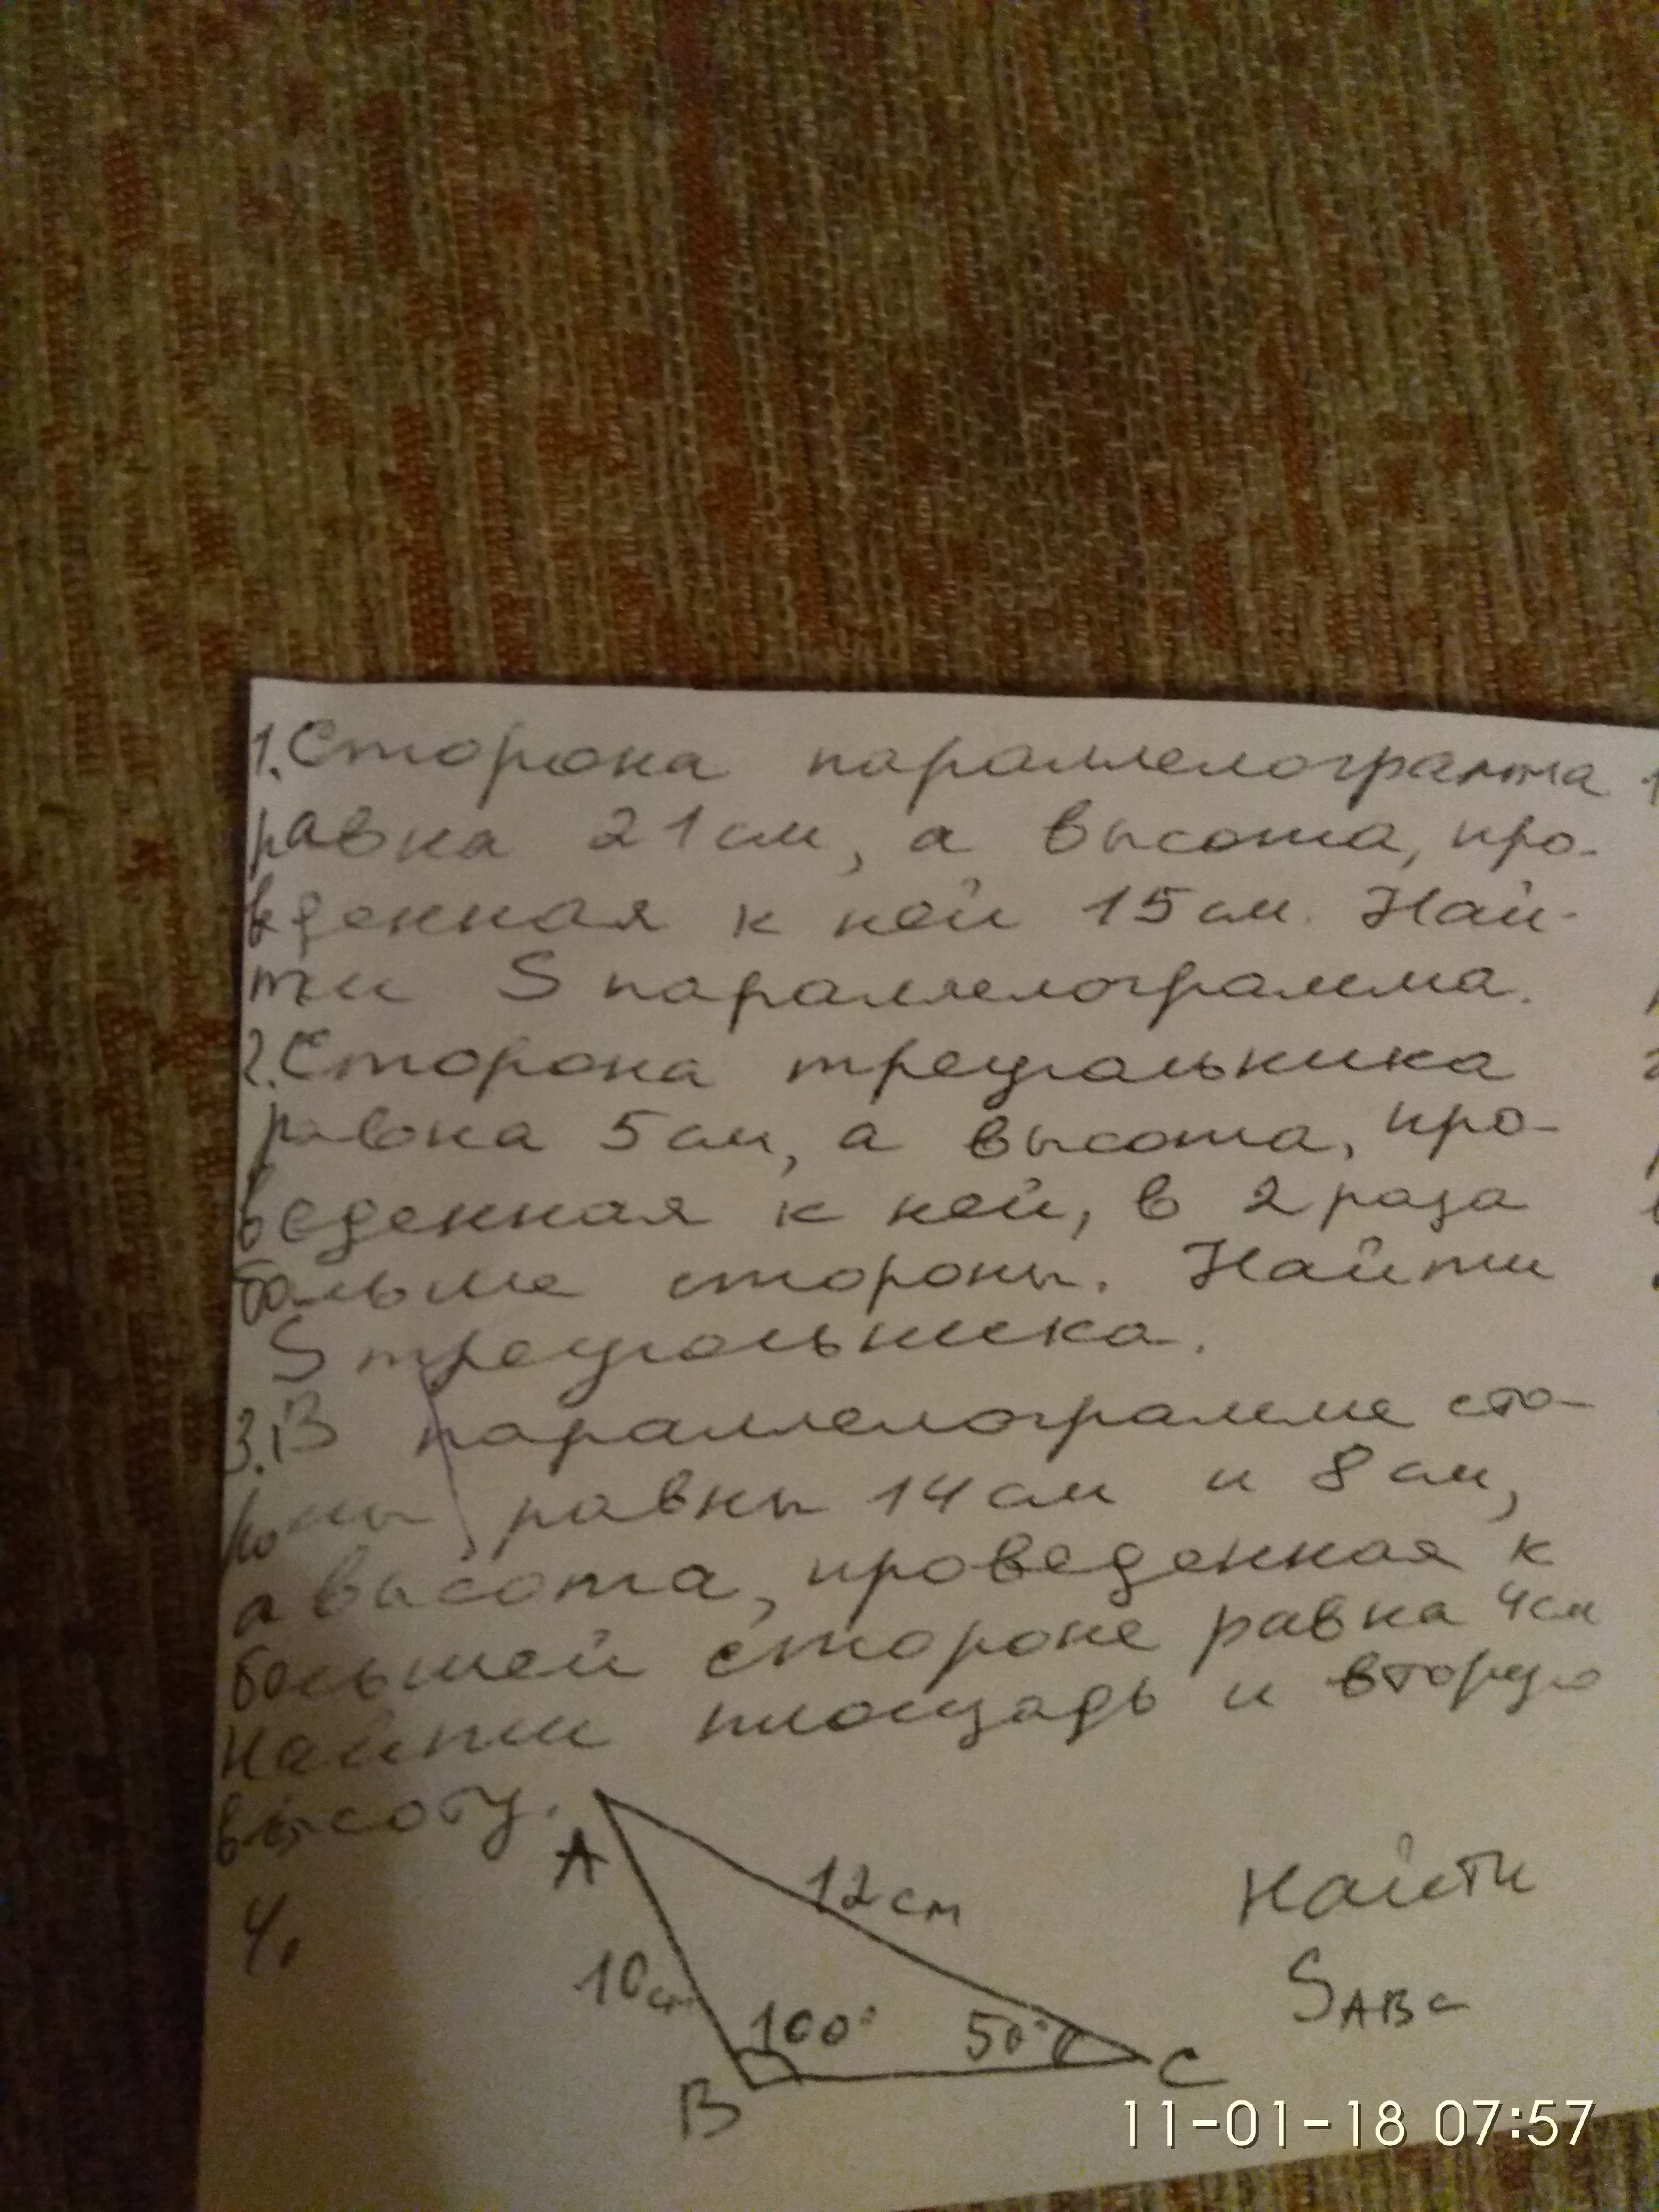 1. Сторона параллелограмма
равна 21 см, а высота, про-
веденная к ней 15 см. Най-
ти S параллелограмма.
2. Сторона треугольника
равна 5 см, а высота, про-
веденная к ней, в 2 раза
больше стороны. Найти
S треугольника.
3. В параллелограмме сто-
роны равны 14 см и 8 см,
а высота, проведенная к
большей стороне равна 4 см
Найти площадь и вторую
высоту.
4.
A
12 см
10 см
100°
50°
B
C
Найти
S ABC
11-01-18 07:57